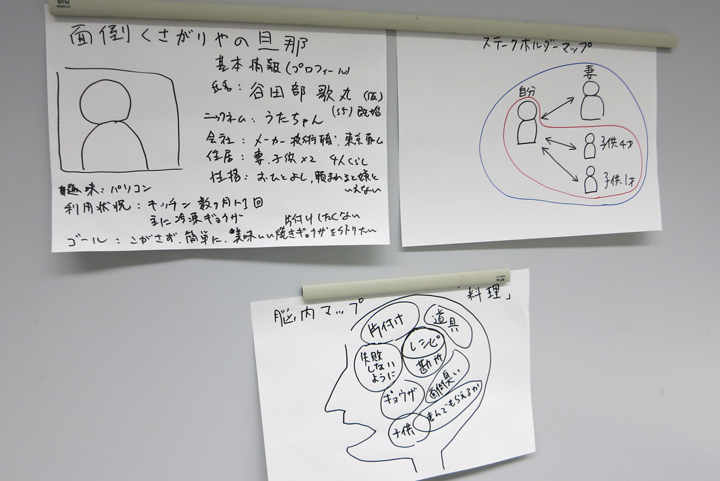 面倒くさがりやの旦那
基本情報(プロフィール)
氏名：谷田部 歌丸 (仮)
(35) 既婚
ニックネーム：うたちゃん
会社：メーカー 技術職、東京
住居：妻、子供×2 4人ぐらし
性格：おひとよし、頼まれると嫌と
いえない
趣味：パソコン
利用状況：キッチン 数ヶ月に1回
主に冷凍ギョウザ
片付けしたくない
ゴール：こがさず、簡単に、美味しい焼きギョウザを作りたい
ステークホルダーマップ
自分
妻
子供4才
子供1才
脳内マップ
「料理」
片付け
道具
レシピ
失敗
しない
ように
勘所
面倒臭い
ギョウザ
喜んでもらえるか
子供